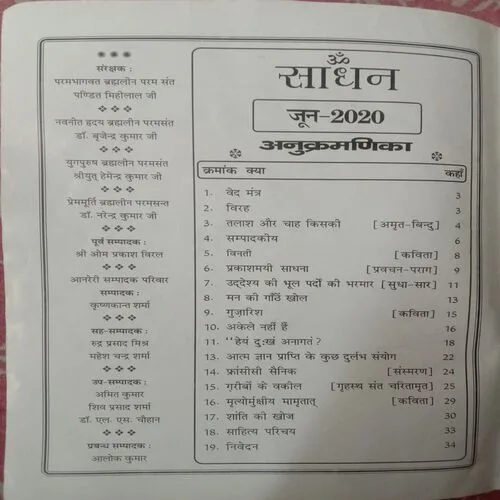 संरक्षक :
परमभागवत ब्रह्मलीन परम संत
पण्डित मिहीलाल जी
नवनीत हृदय ब्रह्मलीन परमसंत
डॉ. बृजेन्द्र कुमार जी
युगपुरुष ब्रह्मलीन परमसंत
श्रीयुत् हेमेन्द्र कुमार जी
प्रेममूर्ति ब्रह्मलीन परमसन्त
डॉ. नरेन्द्र कुमार जी
पूर्व सम्पादक :
श्री ओम प्रकाश विरल
आनरेरी सम्पादक परिवार
सम्पादक :
कृष्णकान्त शर्मा
सह-सम्पादक :
रुद्र प्रसाद मिश्र
महेश चन्द्र शर्मा
उप-सम्पादक :
अमित कुमार
शिव प्रसाद शर्मा
डॉ. एल. एस. चौहान
प्रबन्ध सम्पादक :
आलोक कुमार
ॐ
साधन
जून-2020
अनुक्रमणिका
क्रमांक क्या कहाँ
1. वेद मंत्र 3
2. विरह 3
3. तलाश और चाह किसकी [अमृत-बिन्दु] 4
4. सम्पादकीय 6
5. विनती [कविता] 8
6. प्रकाशमयी साधना [प्रवचन-पराग] 9
7. उद्देश्य की भूल पदों की भरमार [सुधा-सार] 11
8. मन की गाँठें खोल 13
9. गुज़ारिश [कविता] 15
10. अकेले नहीं हैं 16
11. ''हेयं दुःखं अनागतं? 18
13. आत्म ज्ञान प्राप्ति के कुछ दुर्लभ संयोग 22
14. फ्रांसीसी सैनिक [संस्मरण] 24
15. गरीबों के वकील [गृहस्थ संत चरितामृत] 25
16. मृत्योर्मुक्षीय मामृतात् [कविता] 29
17. शांति की खोज 30
18. साहित्य परिचय 33
19. निवेदन 34